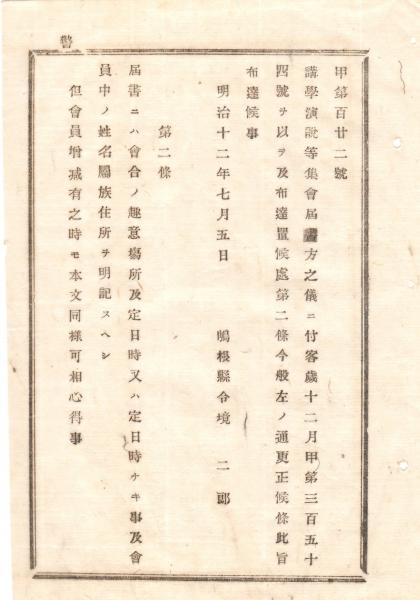 警
甲第百廿二號
講學演説等集會屆書方之儀ニ付客歳十二月甲第三百五十
四號ヲ以テ及布達置候處第二條今般左ノ通更正候條此旨
布達候事
明治十二年七月五日　嶋根縣令境　二郎
第二條
屆書ニハ會合ノ趣意塲所及定日時又ハ定日時ナキ事及會
員中ノ姓名屬族住所ヲ明記スヘシ
但會員增減有之時モ本文同樣可相心得事